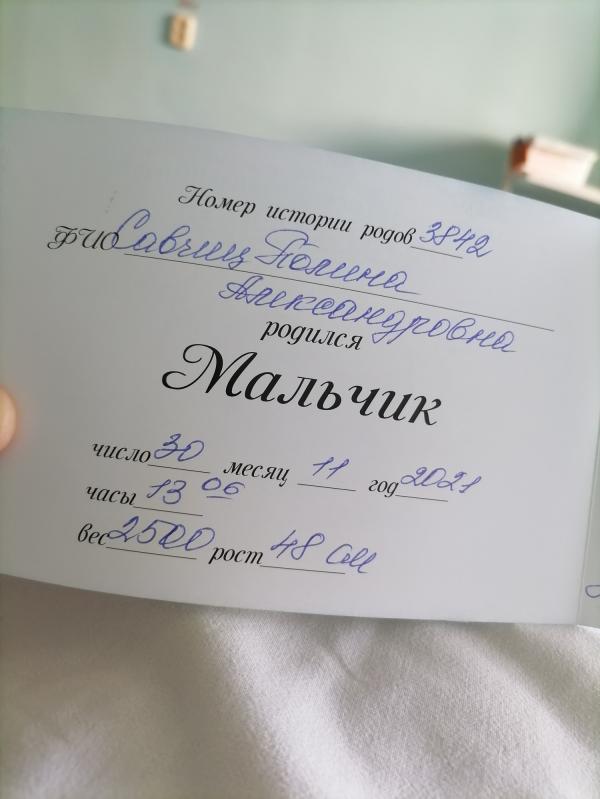 Номер истории родов 3842
ФИО Савчиц Полина
Александровна
родился
Мальчик
число 30 месяц 11 год 2021
часы 13 06
вес 2500 рост 48 см